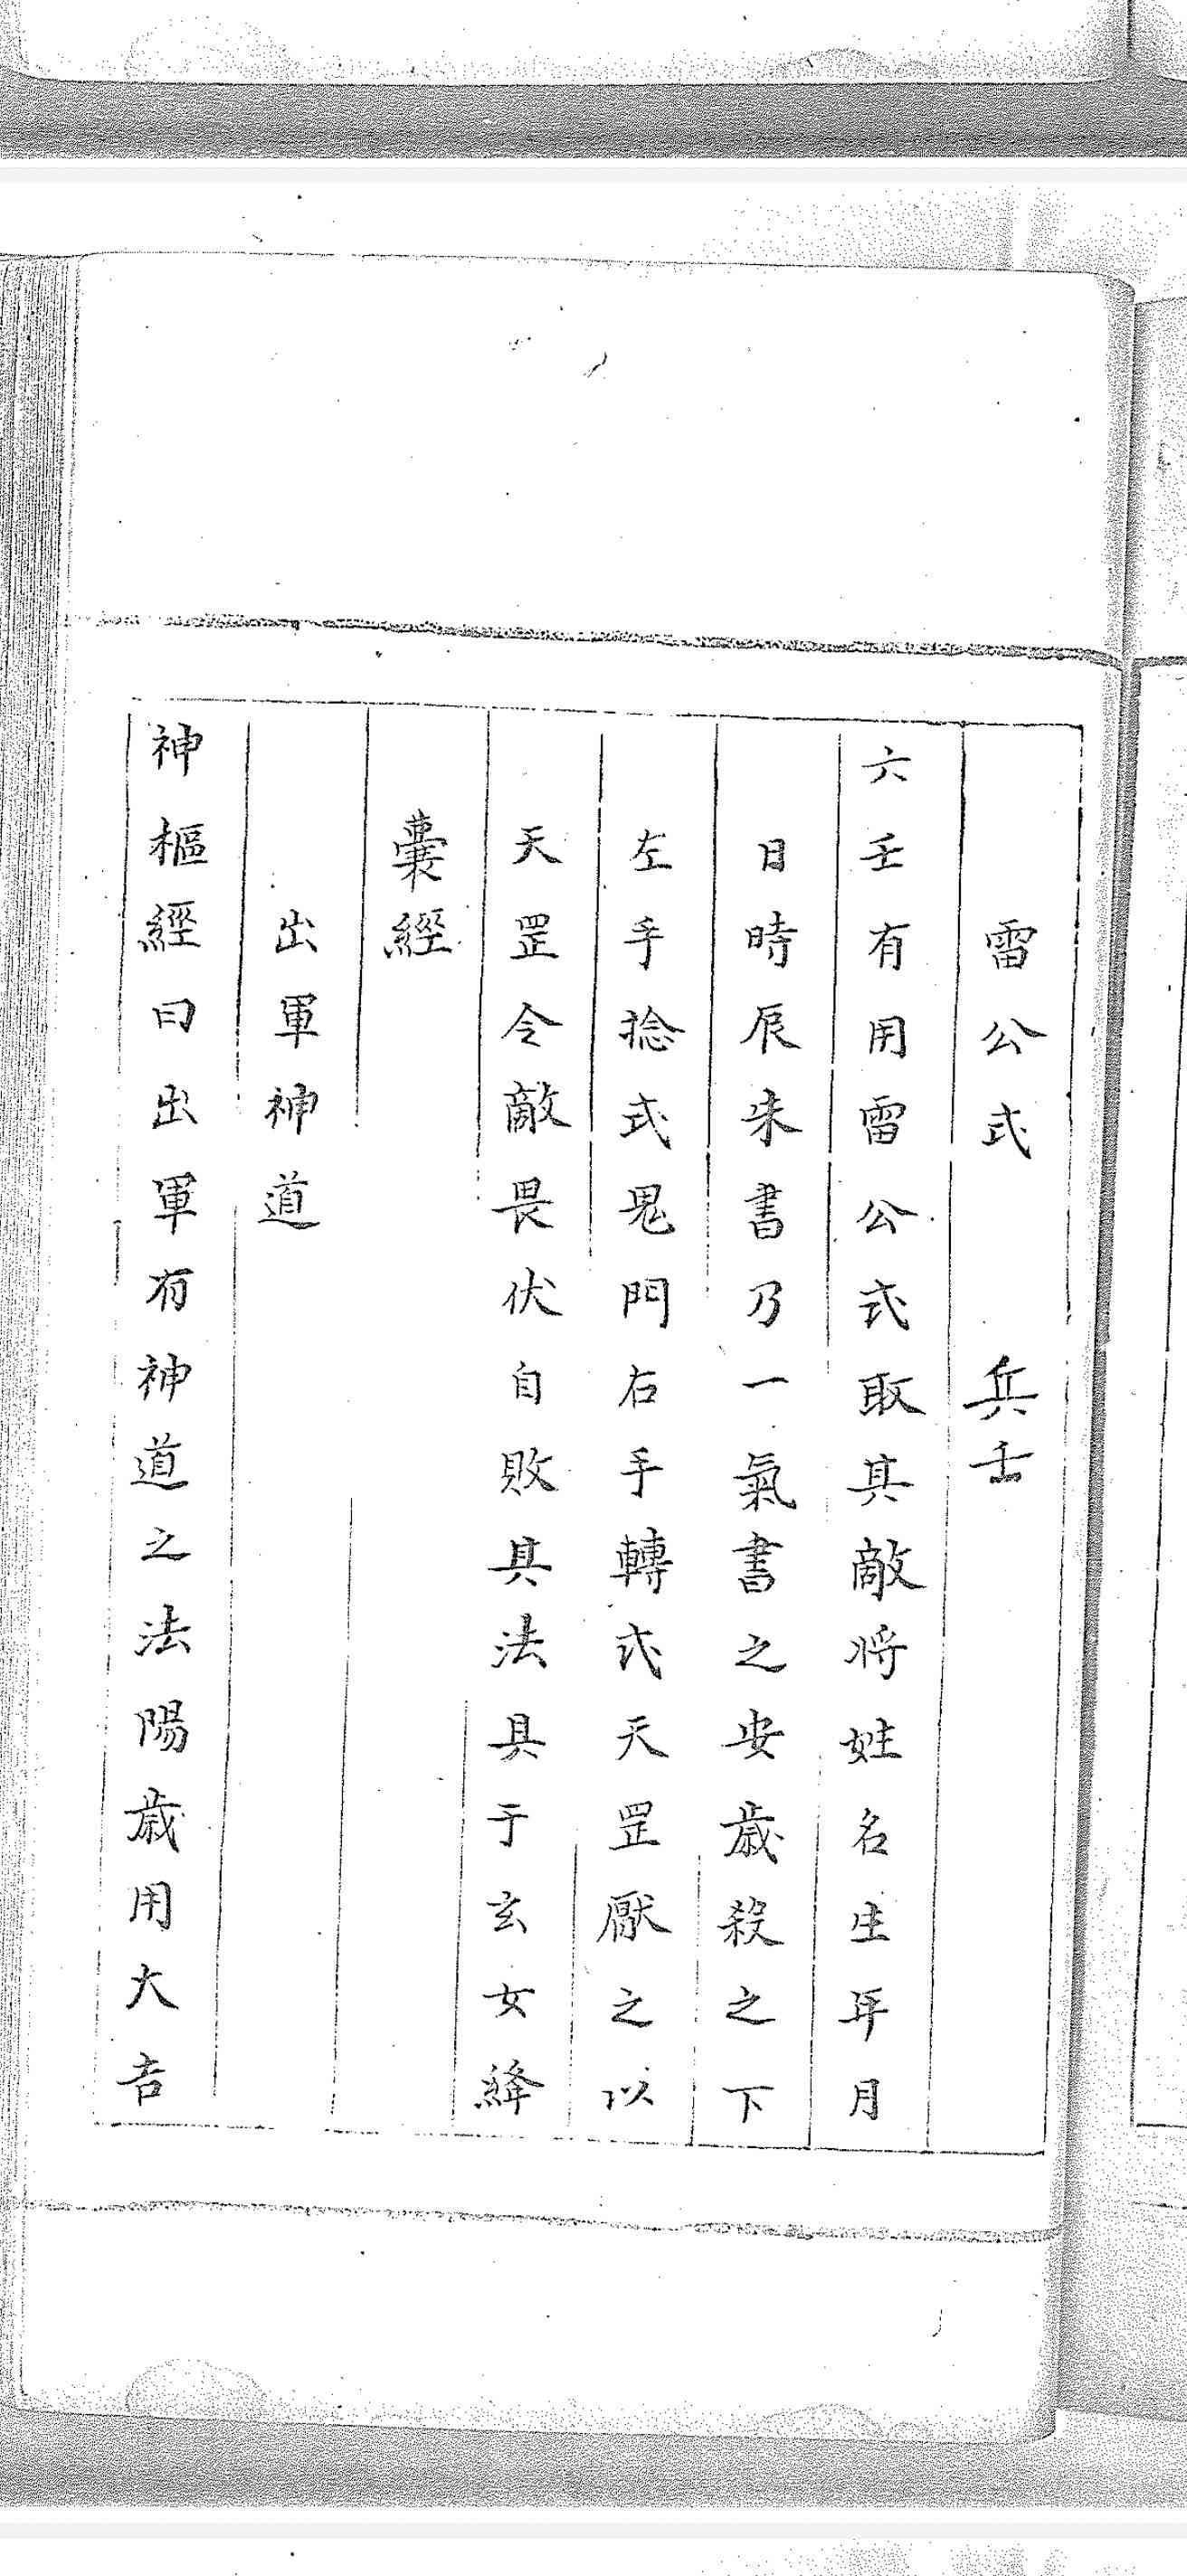 雷公式　兵壬
六壬有用雷公式取其敵将姓名生年月
日時辰朱書乃一氣書之安歲殺之下
左手捻式鬼門右手轉式天罡厭之以
天罡令敵畏伏自敗其法具于玄女絳
囊經
出軍神道
神樞經曰出軍有神道之法陽歲用大吉